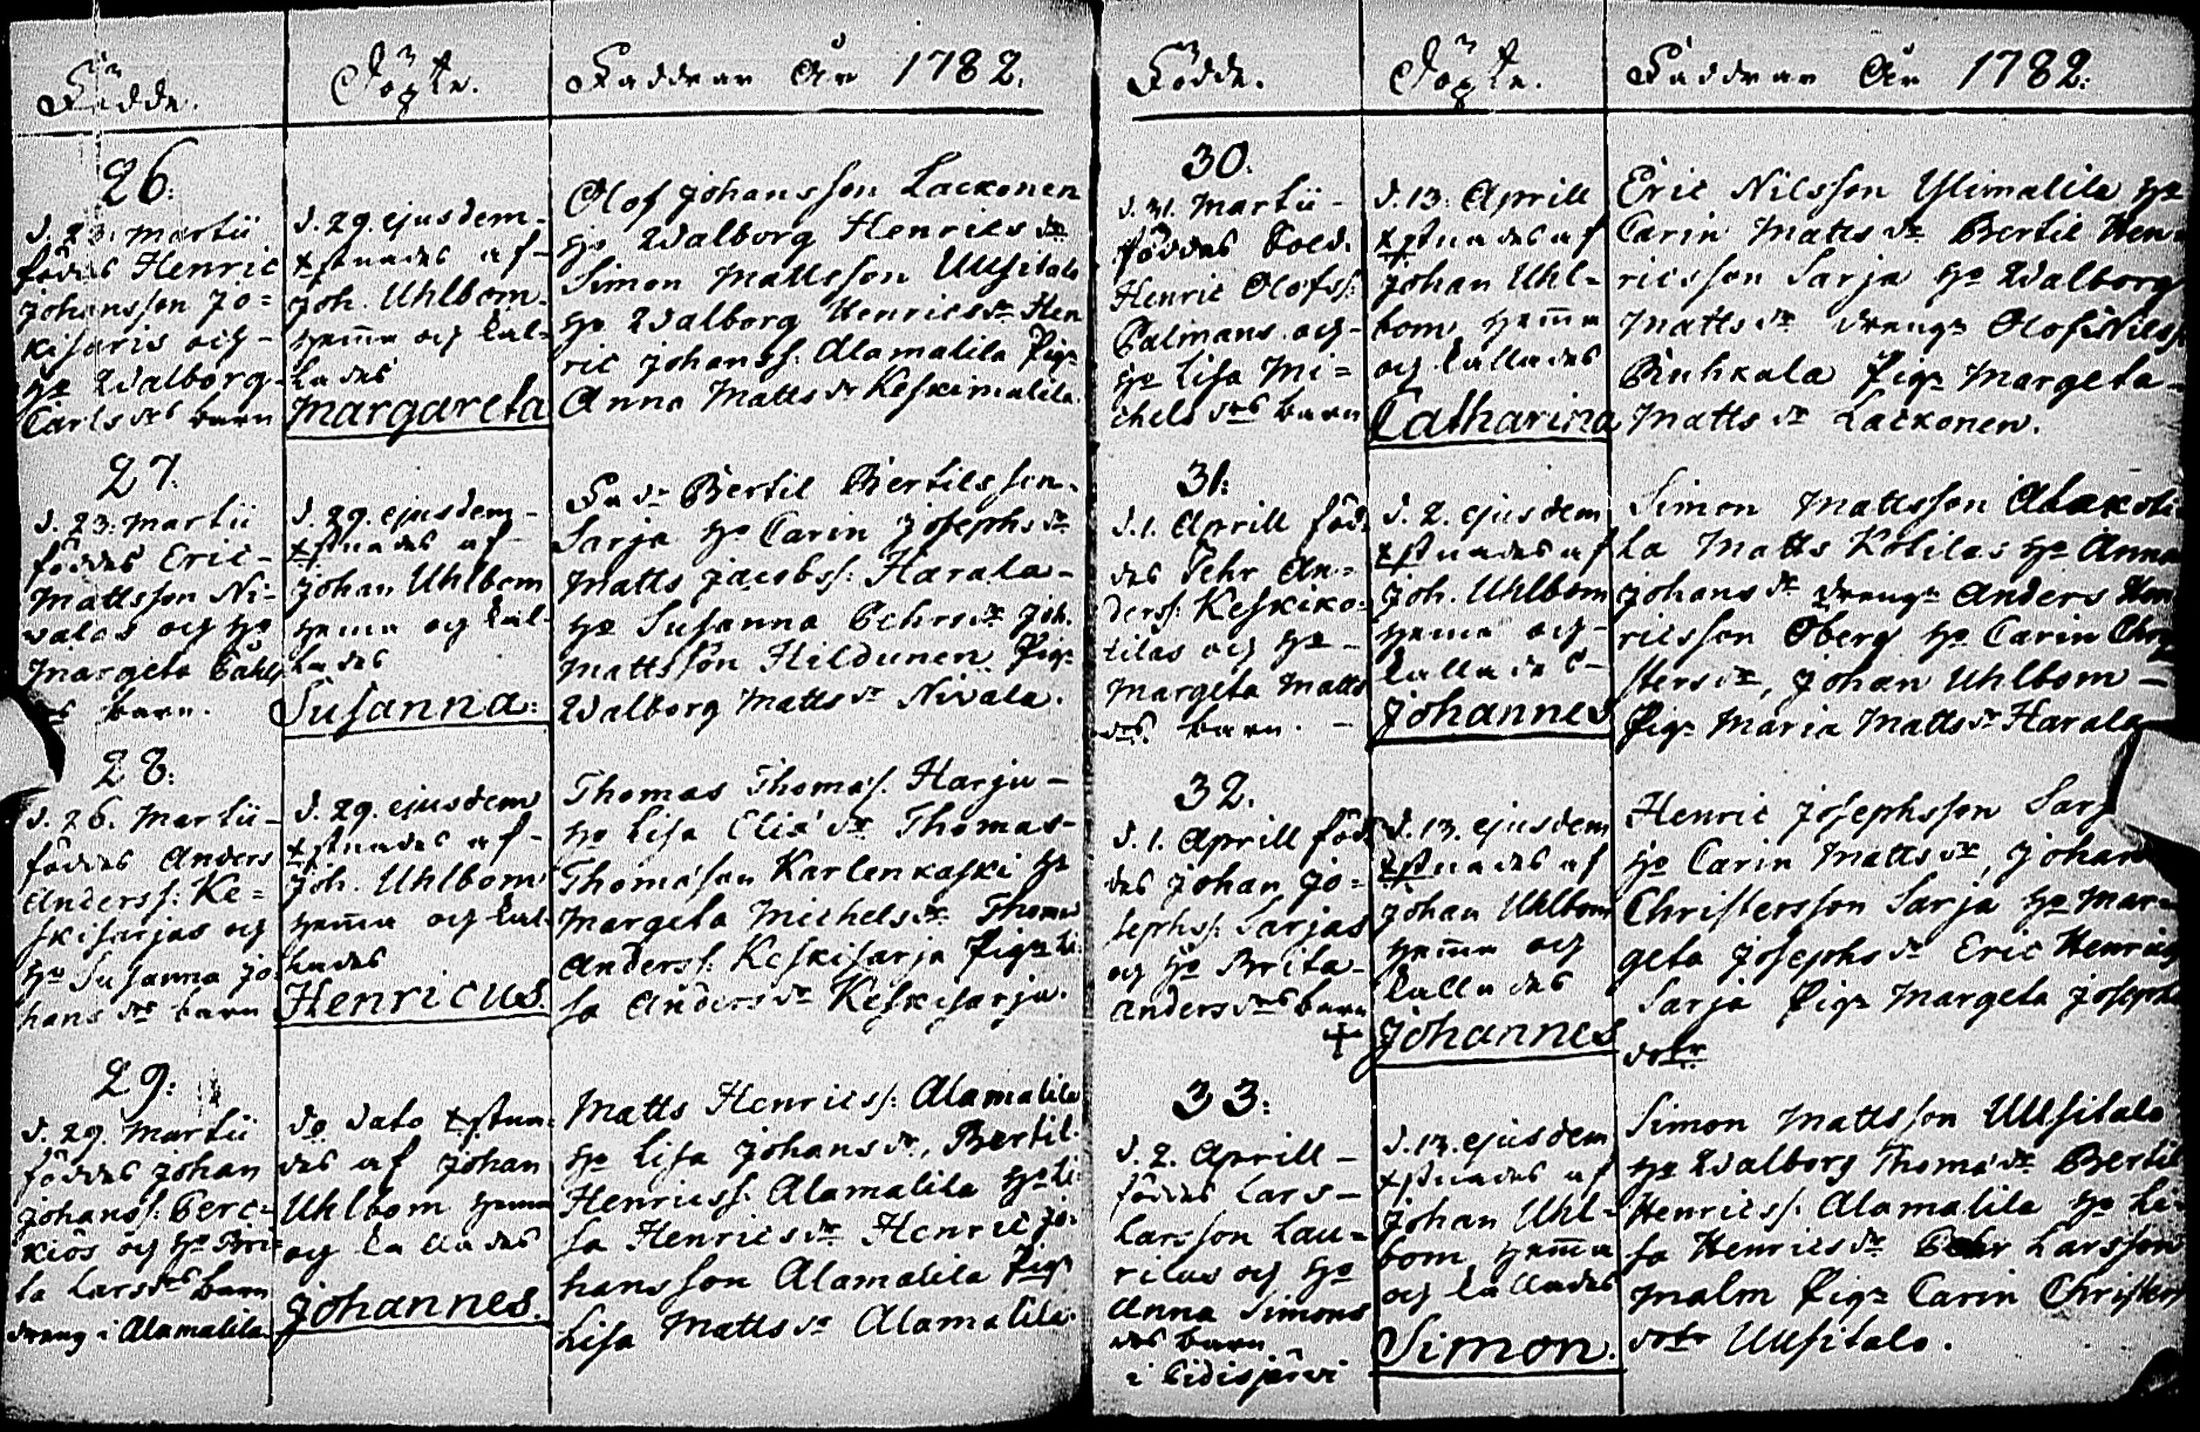 Födde.
Döpte.
Faddrar År 1782.
26.
d. 23. Martii
föddes Henric
Johansson Jo=
kisaris och
Ho Walborg
Carls drs barn
d. 29. ejusdem
xstnades af
Joh. Uhlbom
hema och kal=
lades
Margareta
Olof Johansson Lackonen
Ho Walborg Henrics dr
Simon Mattsson Uusitalo
Ho Walborg Henrics dr Hen
ric Johanss: Alamalila Pig.
Anna Matts dr Keskimalila.
27.
d. 23. Martii
föddes Eric
Mattsson Ni-
valas och Ho
Margeta
drs barn.
d. 29. ejusdem
xstnades af
Johan Uhlbom
hema och kal-
lades
Susanna.
Fadr Bertil Bertilsson
Sarja Ho Carin Josephs dr
Matts Jacobss: Harala
Ho Susanna Pehrs dr Joh.
Mattsson Hildunen. Pig.
Walborg Matts dr Nivala.
28.
d. 26. Martii
föddes Anders
Anderss: Ke=
skisarjas och
Ho Susanna Jo-
hans drs barn
d. 29. ejusdem
xstnades af
Joh. Uhlbom
hema och kal-
lades
Henricus.
Thomas Thomas. Harju
Ho Lisa Eliæ dr Thomas
Thomasson Karlenkaski Ho
Margeta Michels dr Thomas
Anderss: Keskisarja Pig. Li-
sa Anders dr Keskisarja.
29.
d. 29. Martii
föddes Johan
Johanss: Perc-
kiös och Ho Bri-
ta Lars drs barn
dreng i Alamalila
do dato xstna-
des af Johan
Uhlbom hema
och kallades
Johannes.
Matts Henricss: Alamalila
Ho Lisa Johans dr, Bertil
Henricss: Alamalila Ho Li-
sa Henrics dr Henric Jo-
hansson Alamalila Pig.
Lisa Matts dr Alamalila.
Födde.
Döpte.
Faddrar År 1782.
30.
d. 31. Martii
föddes Sold.
Henric Olofss:
Palmans och
Ho Lisa Mi=
chels drs barn
d. 13. Aprill
xstnades af
Johan Uhl-
bom, hema
och kallades
Catharina
Eric Nilsson Ylimalila Ho
Carin Matts dr Bertil Hen-
ricsson Sarja Ho Walborg
Matts dr drengn Olof Nilss:
Pinhkala Pig. Margeta
Matts dr Lackonen.
31.
d. 1. Aprill föd-
des Pehr An=
derss: Keskiko=
tilas och Ho
Margeta Matts
drs. barn.
d. 2. ejusdem
xstnades af
Joh. Uhlbom
hema och
kallades
Johannes
Simon Mattsson Alakoti-
la Matts Kotilas Ho Anna
Johans dr drengn Anders Hen
ricsson Öberg Ho Carin Chri
sters dr, Johan Uhlbom
Pig. Maria Matts dr Harala
32.
d. 1. Aprill föd
des Johan Jo=
sephss: Sarjas
och Ho Brita
Anders drs barn
+
d. 13. ejusdem
xstnades af
Johan Uhlbom
hema och
kallades
Johannes
Henric Josephsson Sarj
Ho Carin Matts dr, Johan
Christersson Sarja Ho Mar-
geta Josephs dr Eric Henrics
Sarja Pig. Margeta Josephs
dotr
33.
d. 2. Aprill
föddes Lars
Larsson Lau-
rilas och Ho
Anna Simons
drs barn
i Pidisjärvi
d. 13. ejusdem
xstnades af
Johan Uhl-
bom hema
och kallades
Simon.
Simon Mattsson Uusitalo
Ho Walborg Thomæ dr Bertil
Henricss: Alamalila Ho Li-
sa Henrics dr Pehr Larsson
Malm Pig. Carin Christers
dotr Uusitalo.